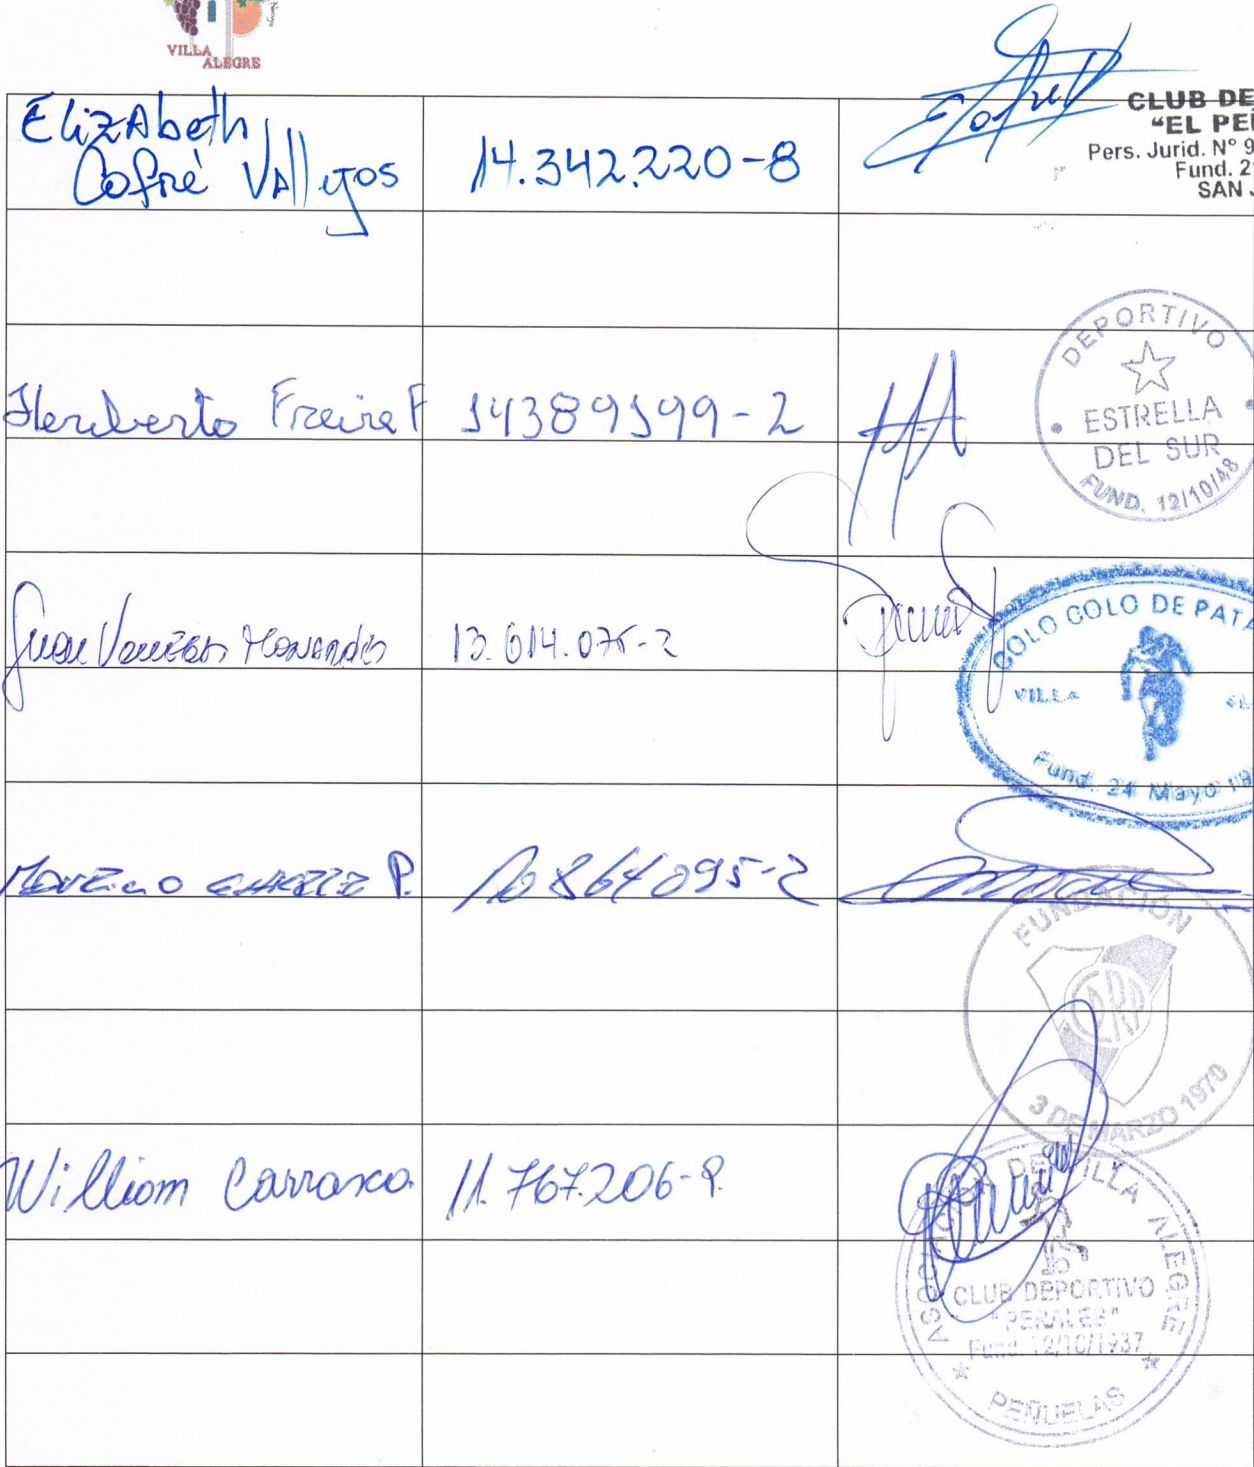 VILLA
ALEGRE
ElizAbeth
Cofré VAllejos
14.342.220-8
CLUB DE
"EL PE
Pers. Jurid. N° 9
Fund. 2
SAN
DEPORTIVO
ESTRELLA
DEL SUR
FUND. 12/10/48
Heriberto Freire F
14389199-2
Juan
13.614.075-2
COLO COLO DE PATA
VILLA
Fund. 24 Mayo 19
P.
10864095-2
FUNDACIÓN
CARP
3 DE MARZO 1970
William Carrasco.
11.767.206-9.
ASOCIACION DE VILLA ALEGRE
CLUB DEPORTIVO
"PERALES"
Fund. 12/10/1937
PEÑUELAS